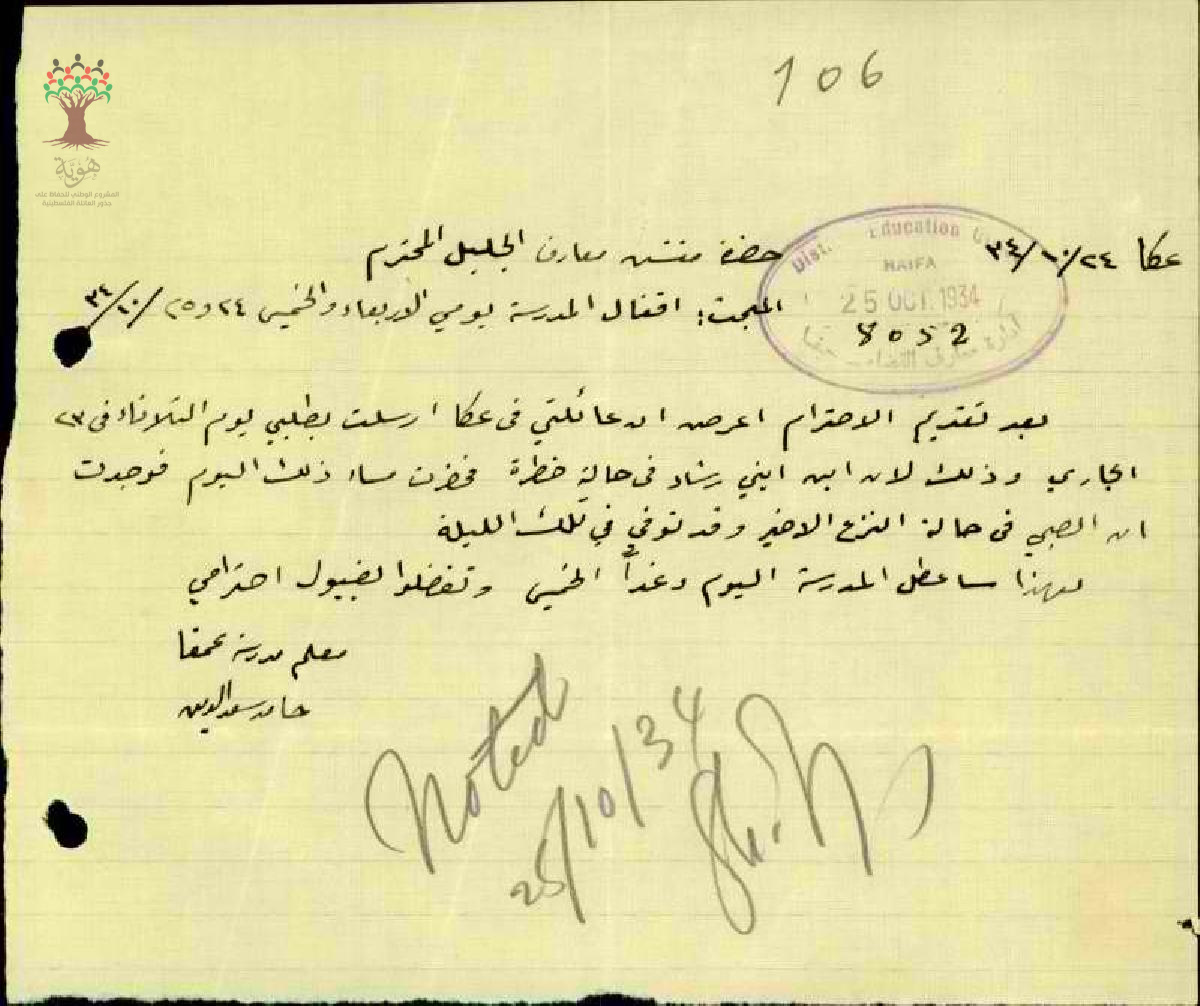 106
هُوِيَّة
المشروع الوطني للحفاظ على
جذور العائلة الفلسطينية
عكا ٢٤/١٠/٣٤
Dist. Education
HAIFA
25 OCT. 1934
8052
ادارة معارف اللواء حيفا
حضرة مفتش معارف الجليل المحترم
المبحث: اقفال المدرسة يومي الاربعاء والخميس ٢٤ و ٢٥/١٠/٣٤
بعد تقديم الاحترام اعرض ان عائلتي في عكا ارسلت بطلبي يوم الثلاثاء في ٢٣
الجاري وذلك لان ابن ابني رشاد في حالة خطرة فحضرت مساء ذلك اليوم فوجدت
ان الصبي في حالة النزع الاخير وقد توفي في تلك الليلة
لهذا ساعطل المدرسة اليوم وغداً الخميس وتفضلوا بقبول احترامي
معلم مدرسة عمقا
حامد سعد الدين
Noted
25/10/34